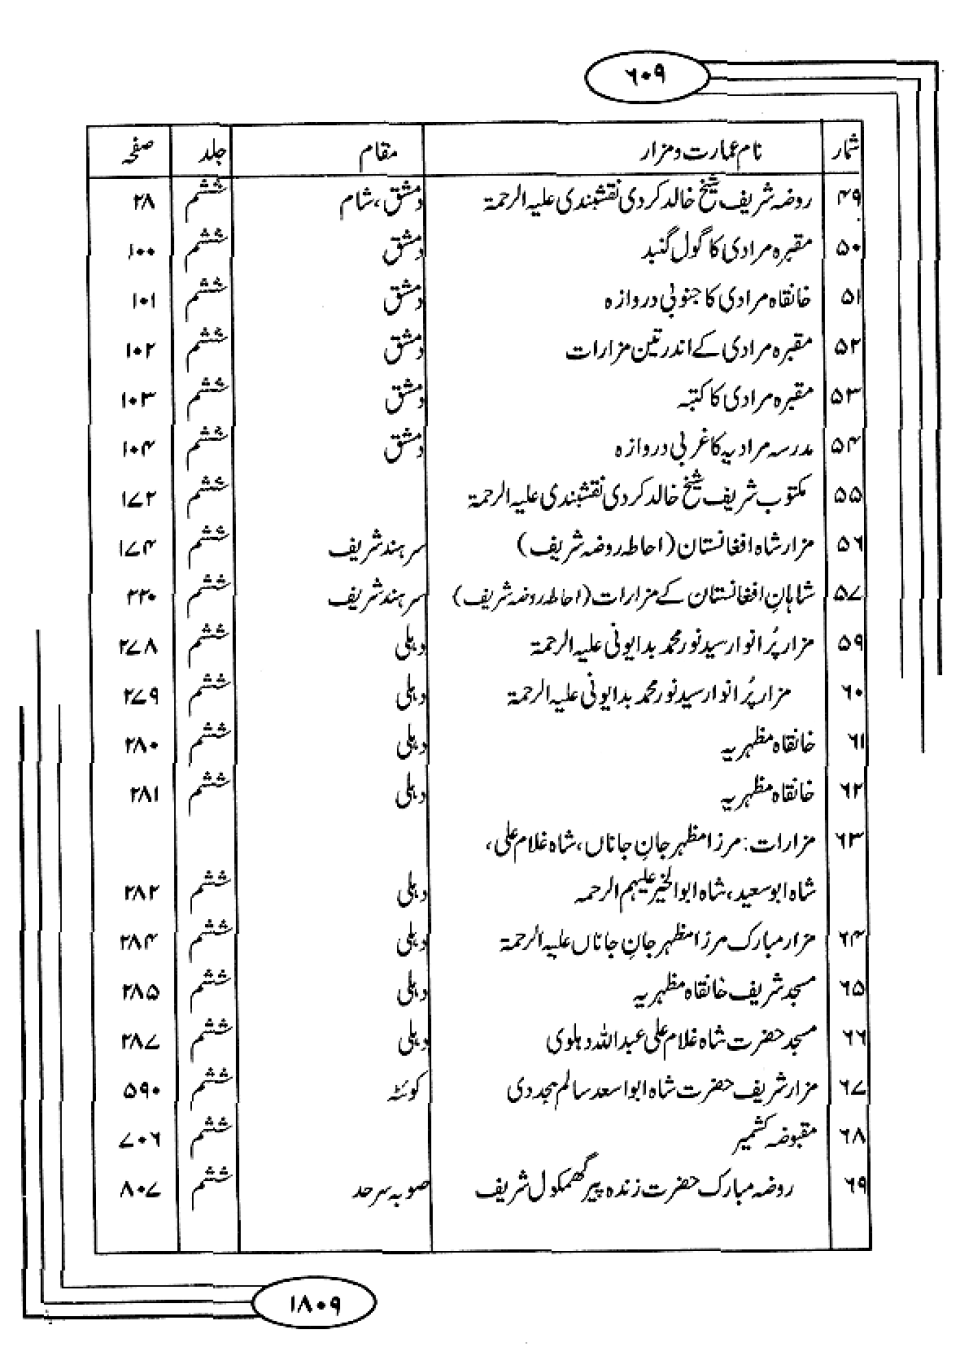 ۶۰۹
شمار نام عمارت و مزار مقام جلد صفحہ
۴۹ روضہ شریف شیخ خالد کردی نقشبندی علیہ الرحمۃ دمشق، شام ششم ۲۸
۵۰ مقبرہ مرادی کا گول گنبد دمشق ششم ۱۰۰
۵۱ خانقاہ مرادی کا جنوبی دروازہ دمشق ششم ۱۰۱
۵۲ مقبرہ مرادی کے اندر تین مزارات دمشق ششم ۱۰۲
۵۳ مقبرہ مرادی کا کتبہ دمشق ششم ۱۰۳
۵۴ مدرسہ مرادیہ کا غربی دروازہ دمشق ششم ۱۰۴
۵۵ مکتوب شریف شیخ خالد کردی نقشبندی علیہ الرحمۃ ششم ۱۷۲
۵۶ مزار شاہ افغانستان (احاطہ روضہ شریف) سرہند شریف ششم ۱۷۴
۵۷ شاہانِ افغانستان کے مزارات (احاطہ روضہ شریف) سرہند شریف ششم ۲۲۰
۵۹ مزار پُر انوار سید نور محمد بدایونی علیہ الرحمۃ دہلی ششم ۲۷۸
۶۰ مزار پُر انوار سید نور محمد بدایونی علیہ الرحمۃ دہلی ششم ۲۷۹
۶۱ خانقاہ مظہریہ دہلی ششم ۲۸۰
۶۲ خانقاہ مظہریہ دہلی ششم ۲۸۱
۶۳ مزارات: مرزا مظہر جانِ جاناں، شاہ غلام علی،
شاہ ابو سعید، شاہ ابوالخیر علیہم الرحمہ دہلی ششم ۲۸۲
۶۴ مزار مبارک مرزا مظہر جانِ جاناں علیہ الرحمۃ دہلی ششم ۲۸۴
۶۵ مسجد شریف خانقاہ مظہریہ دہلی ششم ۲۸۵
۶۶ مسجد حضرت شاہ غلام علی عبداللہ دہلوی دہلی ششم ۲۸۷
۶۷ مزار شریف حضرت شاہ ابو اسعد سالم مجددی کوئٹہ ششم ۵۹۰
۶۸ مقبوضہ کشمیر ششم ۷۰۶
۶۹ روضہ مبارک حضرت زندہ پیر گھمکول شریف صوبہ سرحد ششم ۸۰۷
۱۸۰۹